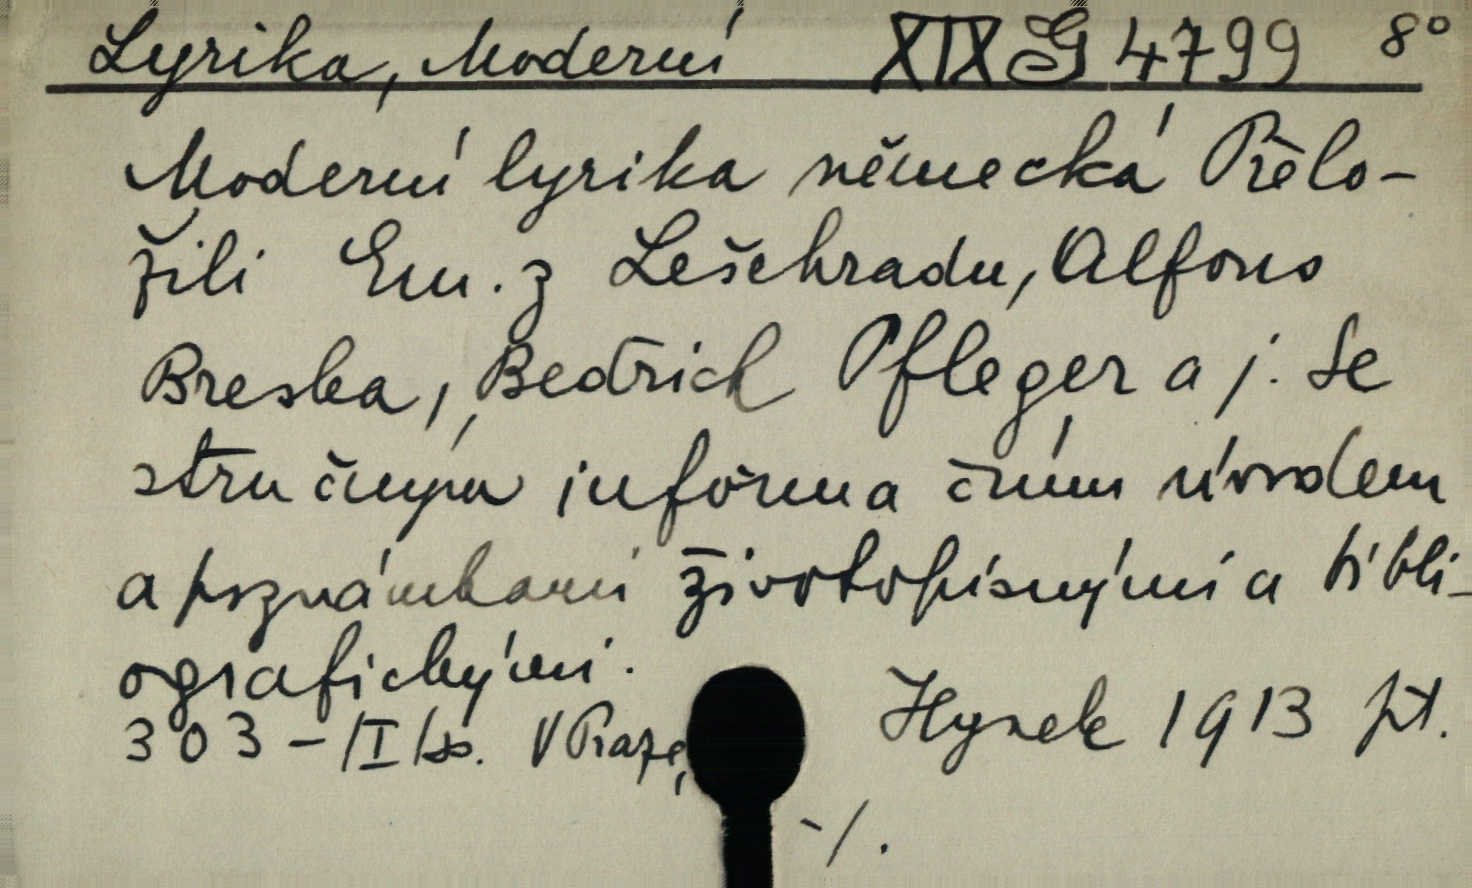 Lyrika, Moderní XIX G 4799 8°
Moderní lyrika německá Přelo-
žili Em. z Lešehradu, Alfons
Breska, Bedřich Pfleger a j. Se
stručným informačním úvodem
a poznámkami životopisnými a bibli-
ografickými.
303-/I/ss. V Praze, Hynek 1913 pt.
-/.